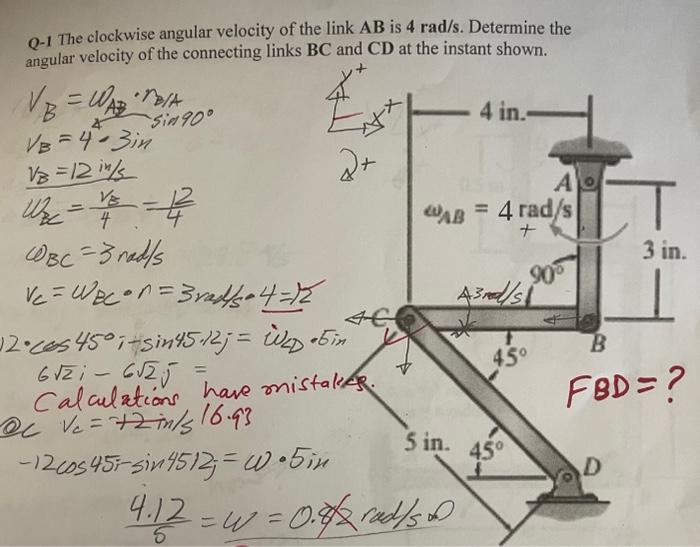 Q-1 The clockwise angular velocity of the link AB is 4 rad/s. Determine the
angular velocity of the connecting links BC and CD at the instant shown.
V_B = ω_AB · r_B/A
sin 90°
V_B = 4 · 3in
V_B = 12 in/s
ω_BC = V_B/4 = 12/4
ω_BC = 3 rad/s
V_C = ω_BC · r = 3 rad/s · 4 = 12
12 · cos 45° i + sin 45 · 12 j = ω_CD · 5in
6√2 i - 6√2 j =
Calculations have mistakes.
@C V_C = 12 in/s 16.93
-12 cos 45 i - sin 45 12 j = ω · 5in
4.12/5 = ω = 0.82 rad/s
Y+
X+
+
4 in.
A
ω_AB = 4 rad/s
+
3 in.
90°
3 rad/s
C
B
45°
FBD = ?
5 in.
45°
D